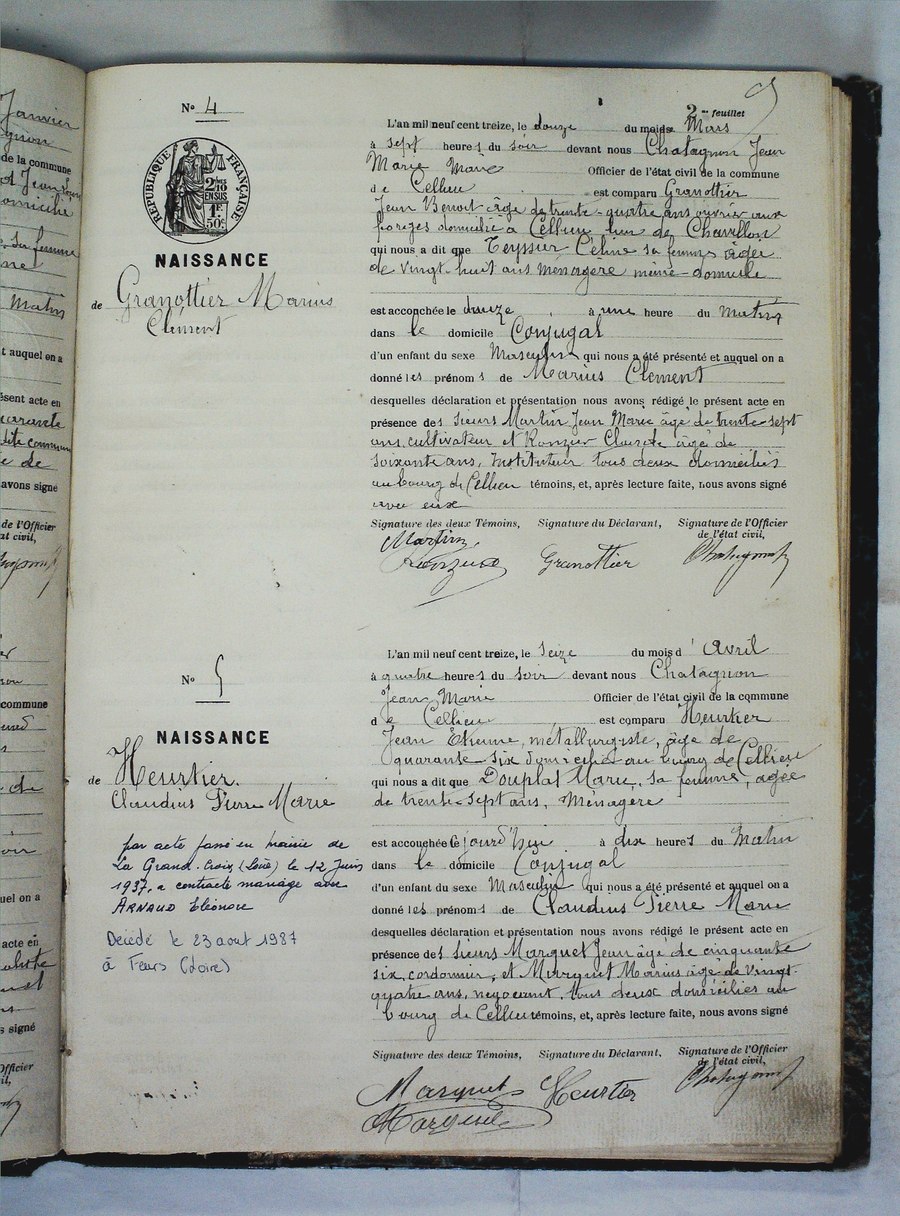 Janvier
de la commune
domicilié
Matin
t auquel on a
ésent acte en
quarante
dite commune
de
avons signé
de l'Officier
at civil,
commune
uel on a
acte en
s signé
Officier
il,
2me feuillet
No 4
RÉPUBLIQUE FRANÇAISE
2/10
EN SUS
1F.
50c.
NAISSANCE
de Granottier Marius
Clément
L'an mil neuf cent treize, le douze du mois de Mars
à sept heures du soir devant nous Chatagnon Jean
Marie Maire Officier de l'état civil de la commune
de Cellieu est comparu Granottier
Jean Benoit âgé de trente-quatre ans ouvrier aux
forges domicilié à Cellieu lieu de Chavillon
qui nous a dit que Teyssier Céline sa femme âgée
de vingt-huit ans ménagère même domicile
est accouchée le douze à une heure du matin
dans le domicile Conjugal
d'un enfant du sexe Masculin qui nous a été présenté et auquel on a
donné les prénoms de Marius Clément
desquelles déclaration et présentation nous avons rédigé le présent acte en
présence des Sieurs Martin Jean Marie âgé de trente-sept
ans, cultivateur et Ronzier Claude âgé de
soixante ans, Instituteur tous deux domiciliés
au bourg de Cellieu témoins, et, après lecture faite, nous avons signé
avec eux
Signature des deux Témoins, Signature du Déclarant, Signature de l'Officier
de l'état civil,
Martin Granottier Chatagnon
Ronzier
No 5
NAISSANCE
de Heurtier
Claudius Pierre Marie
par acte passé en mairie de
La Grand-Croix (Loire) le 12 Juin
1937, a contracté mariage avec
ARNAUD Eléonore
Décédé le 23 août 1987
à Feurs (Loire)
L'an mil neuf cent treize, le seize du mois d'Avril
à quatre heures du soir devant nous Chatagnon
Jean Marie Officier de l'état civil de la commune
de Cellieu est comparu Heurtier
Jean Etienne, métallurgiste, âgé de
quarante-six domicilié au bourg de Cellieu
qui nous a dit que Douplat Marie, sa femme, agée
de trente-sept ans, Ménagère
est accouchée ce jourd'hui à dix heures du Matin
dans le domicile Conjugal
d'un enfant du sexe Masculin qui nous a été présenté et auquel on a
donné les prénoms de Claudius Pierre Marie
desquelles déclaration et présentation nous avons rédigé le présent acte en
présence des Sieurs Marquet Jean âgé de cinquante
six, cordonnier, et Marquet Marius âgé de vingt-
quatre ans, négociant, tous deux domiciliés au
bourg de Cellieu témoins, et, après lecture faite, nous avons signé
Signature des deux Témoins, Signature du Déclarant, Signature de l'Officier
de l'état civil,
Marquet Heurtier Chatagnon
Marquet